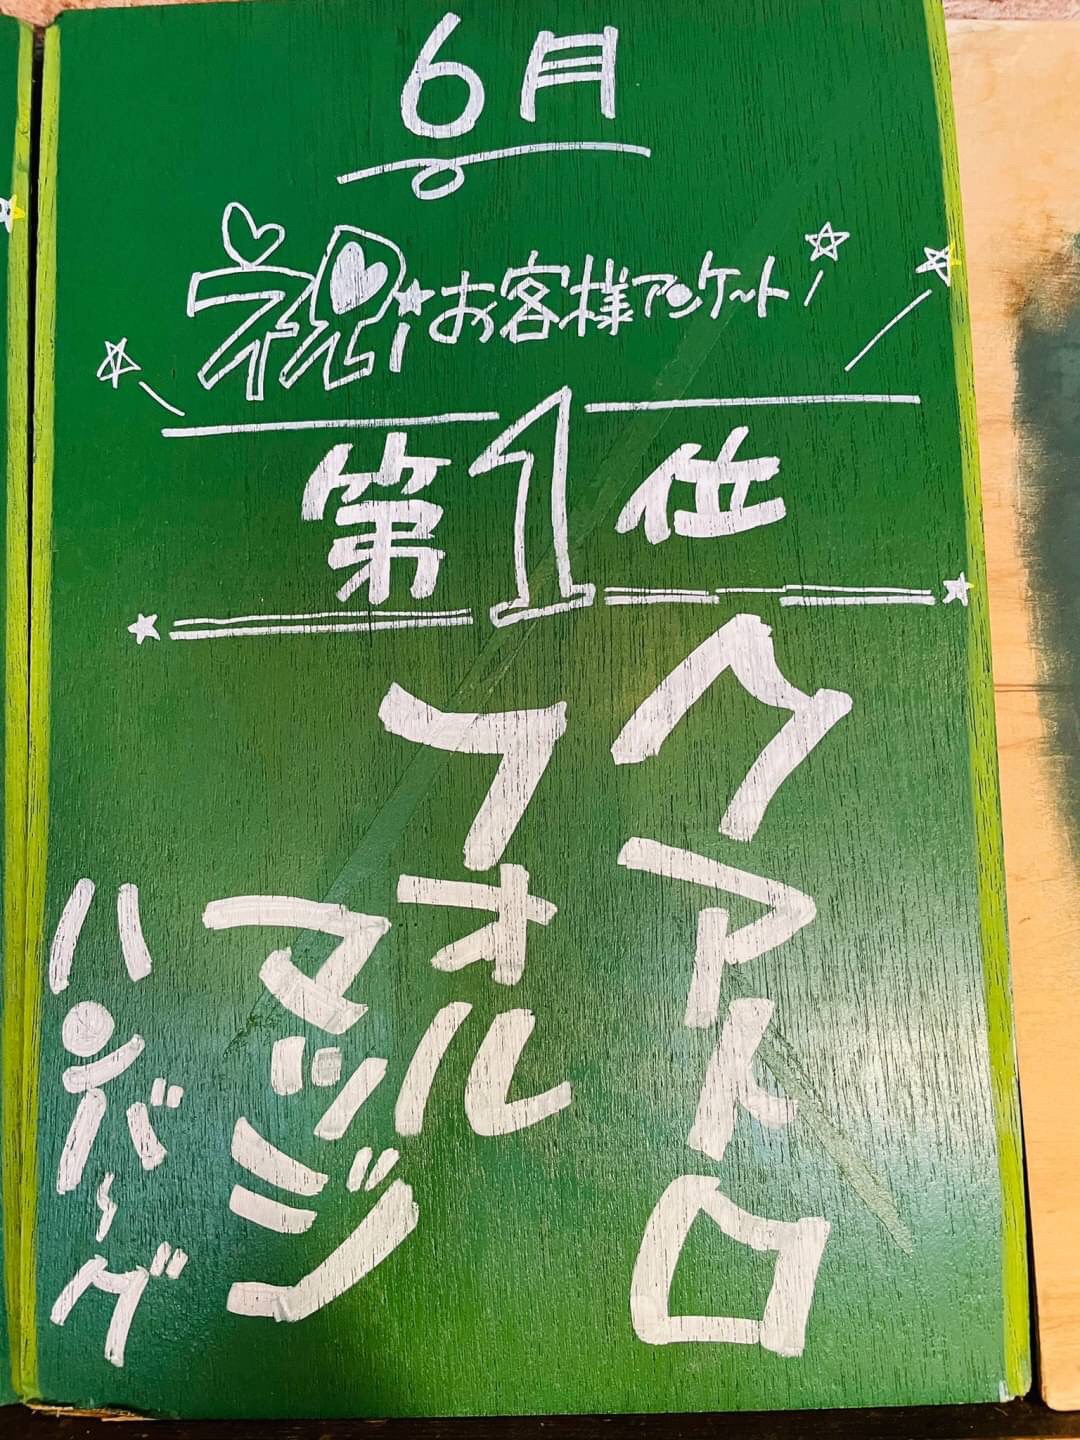 6月
祝!お客様アンケート
第1位
クアトロ
フォルマッジ
ハンバーグ